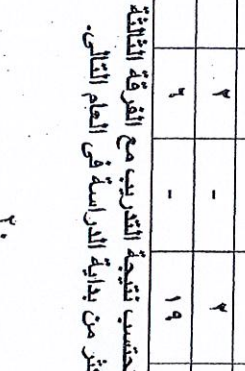 ٢ - ٢
١٩ - ٦
حتسب نتيجة التدريب مع الفرقة الثالثة
من بداية الدراسة فى العام التالى.
٢٠